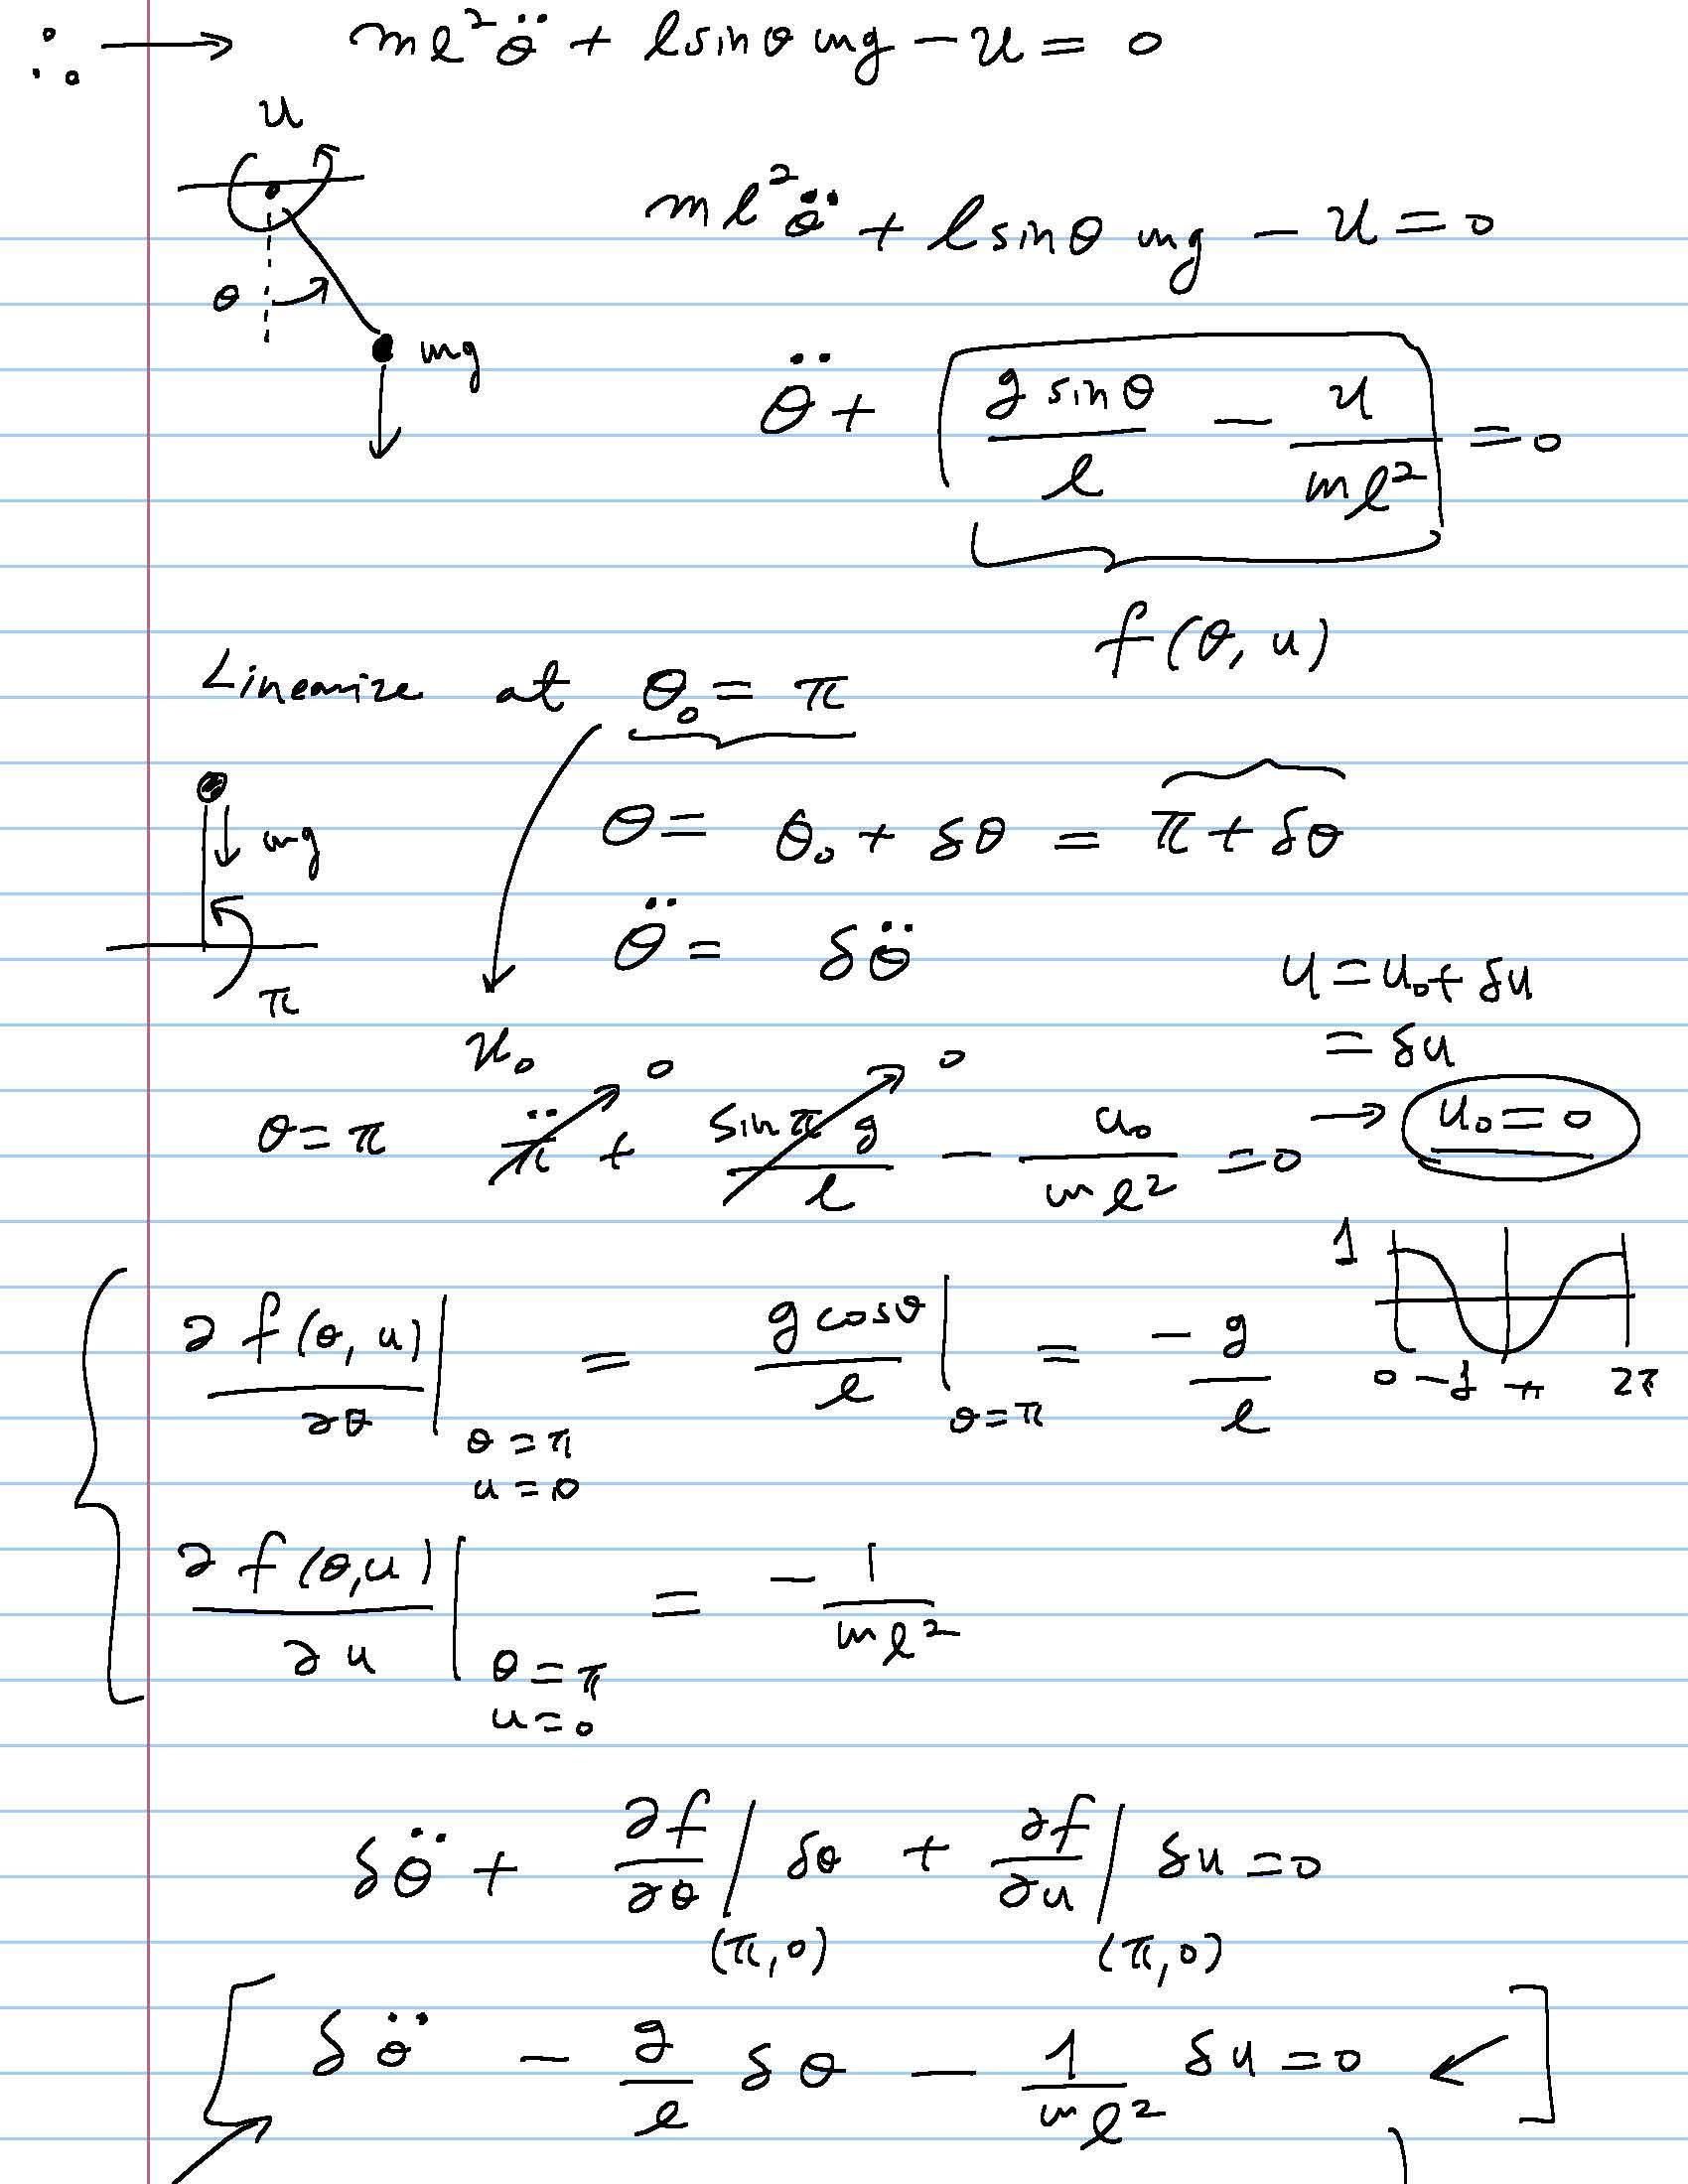 ∴ → mℓ²θ̈ + ℓ sinθ mg − u = 0
u
mℓ²θ̈ + ℓ sinθ mg − u = 0
θ
mg
θ̈ + [ g sinθ / ℓ − u / mℓ² ] = 0
f(θ, u)
Linearize at θ₀ = π
mg
θ = θ₀ + δθ = π + δθ
θ̈ = δθ̈
π
u = u₀ + δu
= δu
u₀
θ = π π̈ → 0 + sinπ g / ℓ → 0 − u₀ / mℓ² = 0 → u₀ = 0
1
0 −1 π 2π
∂f(θ, u) / ∂θ | θ = π u = 0 = g cosθ / ℓ | θ = π = − g / ℓ
∂f(θ,u) / ∂u | θ = π u = 0 = − 1 / mℓ²
δθ̈ + ∂f/∂θ | (π,0) δθ + ∂f/∂u | (π,0) δu = 0
[ δθ̈ − g/ℓ δθ − 1/mℓ² δu = 0 ← ]